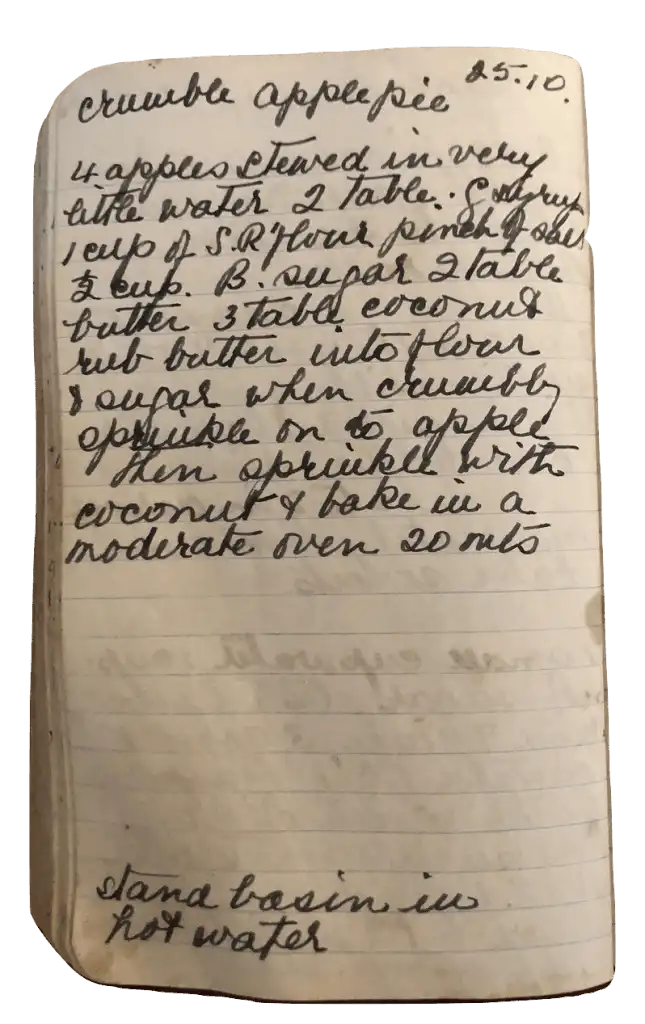 crumble apple pie 25.10.
4 apples stewed in very
little water 2 table. G syrup
1 cup of S.R flour pinch of salt
½ cup. B. sugar 2 table
butter 3 table coconut
rub butter into flour
& sugar when crumbly
sprinkle on to apple
then sprinkle with
coconut & bake in a
moderate oven 20 mts
stand basin in
hot water